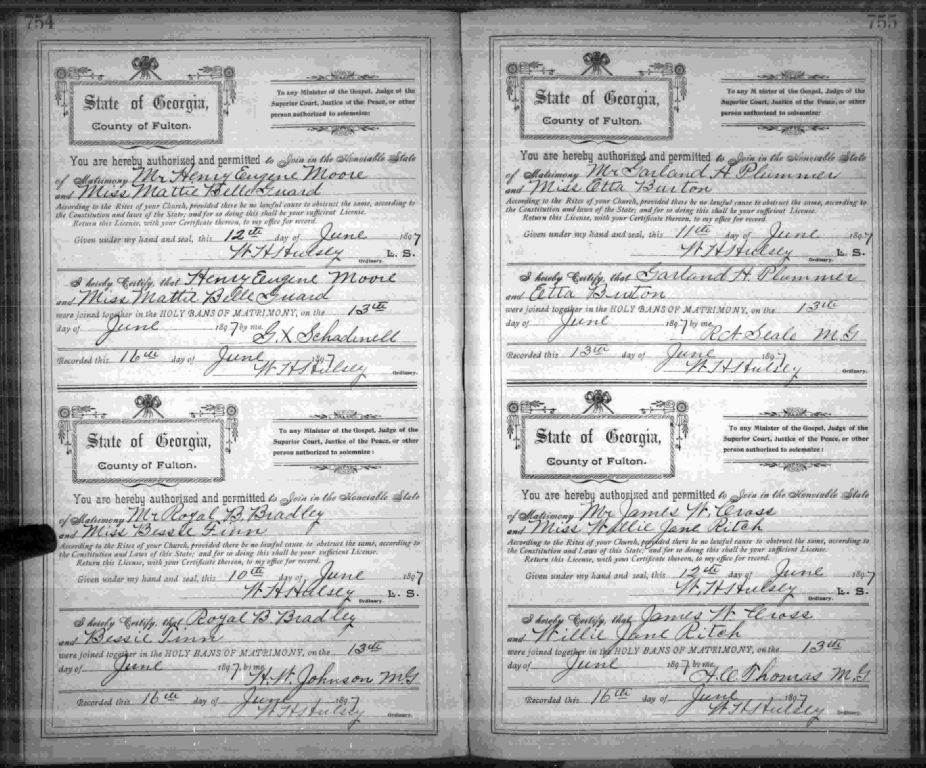 754
State of Georgia,
County of Fulton.
To any Minister of the Gospel, Judge of the
Superior Court, Justice of the Peace, or other
person authorized to solemnize:
You are hereby authorized and permitted to Join in the Honorable State
of Matrimony Mr Henry Eugene Moore
and Miss Mattie Belle Guard
According to the Rites of your Church, provided there be no lawful cause to obstruct the same, according to
the Constitution and laws of the State; and for so doing this shall be your sufficient License.
Return this License, with your Certificate thereon, to my office for record.
Given under my hand and seal, this 12th day of June 1897
W H Hulsey L. S.
Ordinary.
I hereby Certify, that Henry Eugene Moore
and Miss Mattie Belle Guard
were joined together in the HOLY BANS OF MATRIMONY, on the 13th
day of June 1897 by me.
G. X Schadewell
Recorded this 16th day of June 1897
W H Hulsey
Ordinary.
State of Georgia,
County of Fulton.
To any Minister of the Gospel, Judge of the
Superior Court, Justice of the Peace, or other
person authorized to solemnize:
You are hereby authorized and permitted to Join in the Honorable State
of Matrimony Mr Royal B. Bradley
and Miss Bessie Finn
According to the Rites of your Church, provided there be no lawful cause to obstruct the same, according to
the Constitution and Laws of this State; and for so doing this shall be your sufficient License.
Return this License, with your Certificate thereon, to my office for record.
Given under my hand and seal, this 10th day of June 1897
W H Hulsey L. S.
Ordinary.
I hereby Certify, that Royal B. Bradley
and Bessie Finn
were joined together in the HOLY BANS OF MATRIMONY, on the 13th
day of June 1897 by me.
H. W. Johnson M G
Recorded this 16th day of June 1897
W H Hulsey
Ordinary.
755
State of Georgia,
County of Fulton.
To any Minister of the Gospel, Judge of the
Superior Court, Justice of the Peace, or other
person authorized to solemnize:
You are hereby authorized and permitted to Join in the Honorable State
of Matrimony Mr Garland H Plummer
and Miss Etta Burton
According to the Rites of your Church, provided there be no lawful cause to obstruct the same, according to
the Constitution and laws of the State; and for so doing this shall be your sufficient License.
Return this License, with your Certificate thereon, to my office for record.
Given under my hand and seal, this 11th day of June 1897
W H Hulsey L. S.
Ordinary.
I hereby Certify, that Garland H. Plummer
and Etta Burton
were joined together in the HOLY BANS OF MATRIMONY, on the 13th
day of June 1897 by me.
R A Seale M. G
Recorded this 13th day of June 1897
W H Hulsey
Ordinary.
State of Georgia,
County of Fulton.
To any Minister of the Gospel, Judge of the
Superior Court, Justice of the Peace, or other
person authorized to solemnize:
You are hereby authorized and permitted to Join in the Honorable State
of Matrimony Mr James W. Cross
and Miss Willie Jane Ritch
According to the Rites of your Church, provided there be no lawful cause to obstruct the same, according to
the Constitution and Laws of the State; and for so doing this shall be your sufficient License.
Return this License, with your Certificate thereon, to my office for record.
Given under my hand and seal, this 12th day of June 1897
W H Hulsey L. S.
Ordinary.
I hereby Certify, that James W Cross
and Willie Jane Ritch
were joined together in the HOLY BANS OF MATRIMONY, on the 13th
day of June 1897 by me.
H. C Thomas M. G
Recorded this 16th day of June 1897
W H Hulsey
Ordinary.